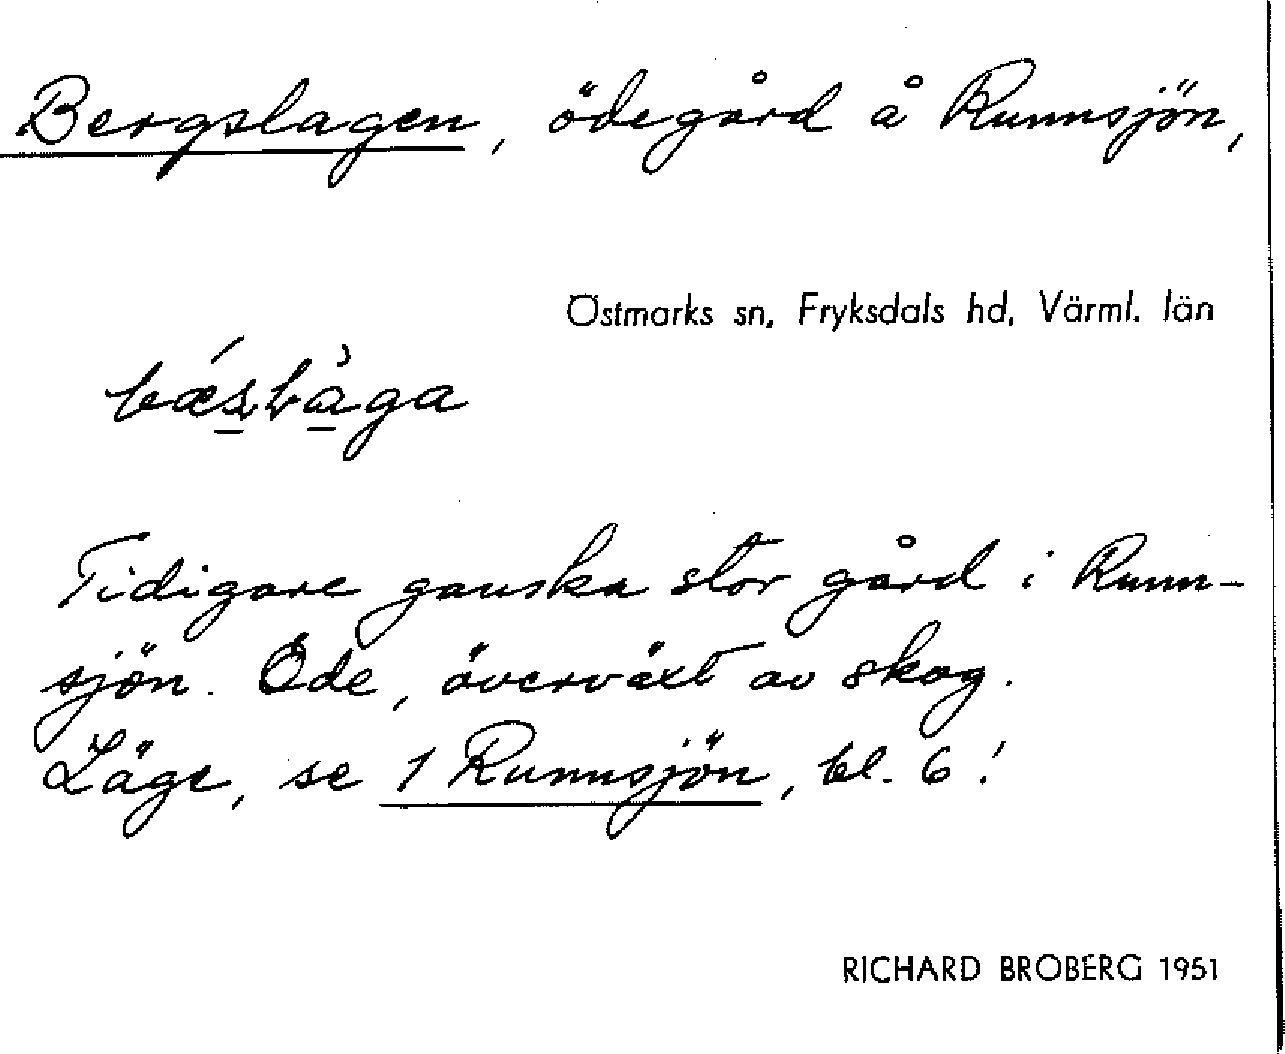 Bergslagen, ödegård å Runnsjön,
Östmarks sn, Fryksdals hd, Värml. län
Tidigare ganska stor gård i Runn-
sjön. Öde, överväxt av skog.
Läge, se 1 Runnsjön, bl. 6!
RICHARD BROBERG 1951